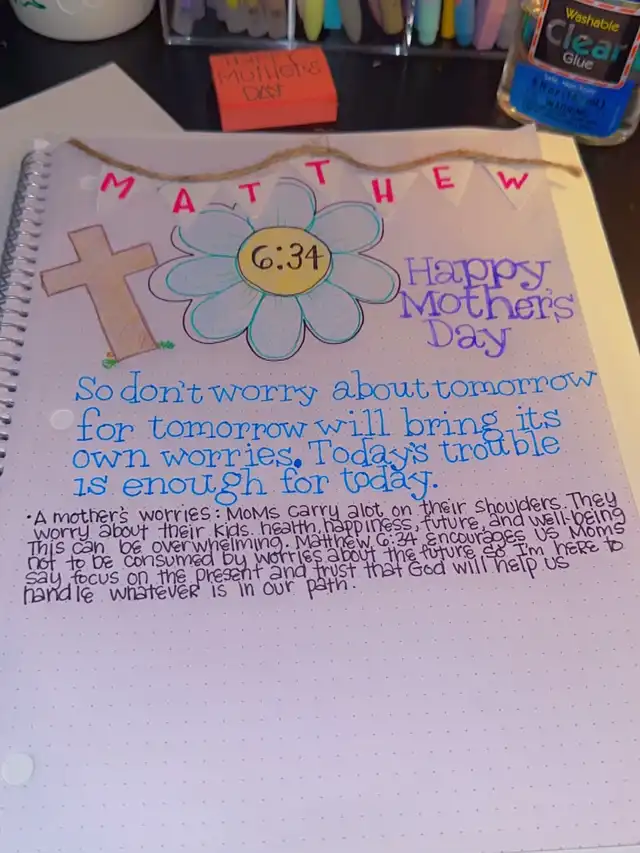 Washable
Clear
Glue
Happy
Mother's
Day
MATTHEW
6:34
Happy
Mother's
Day
So don't worry about tomorrow
for tomorrow will bring its
own worries. Today's trouble
is enough for today.
• A mother's worries: Moms carry alot on their shoulders. They
worry about their kids. health, happiness, future, and well-being
This can be overwhelming. Matthew 6:34 encourages us Moms
not to be consumed by worries about the future so I'm here to
say focus on the present and trust that God will help us
handle whatever is in our path.